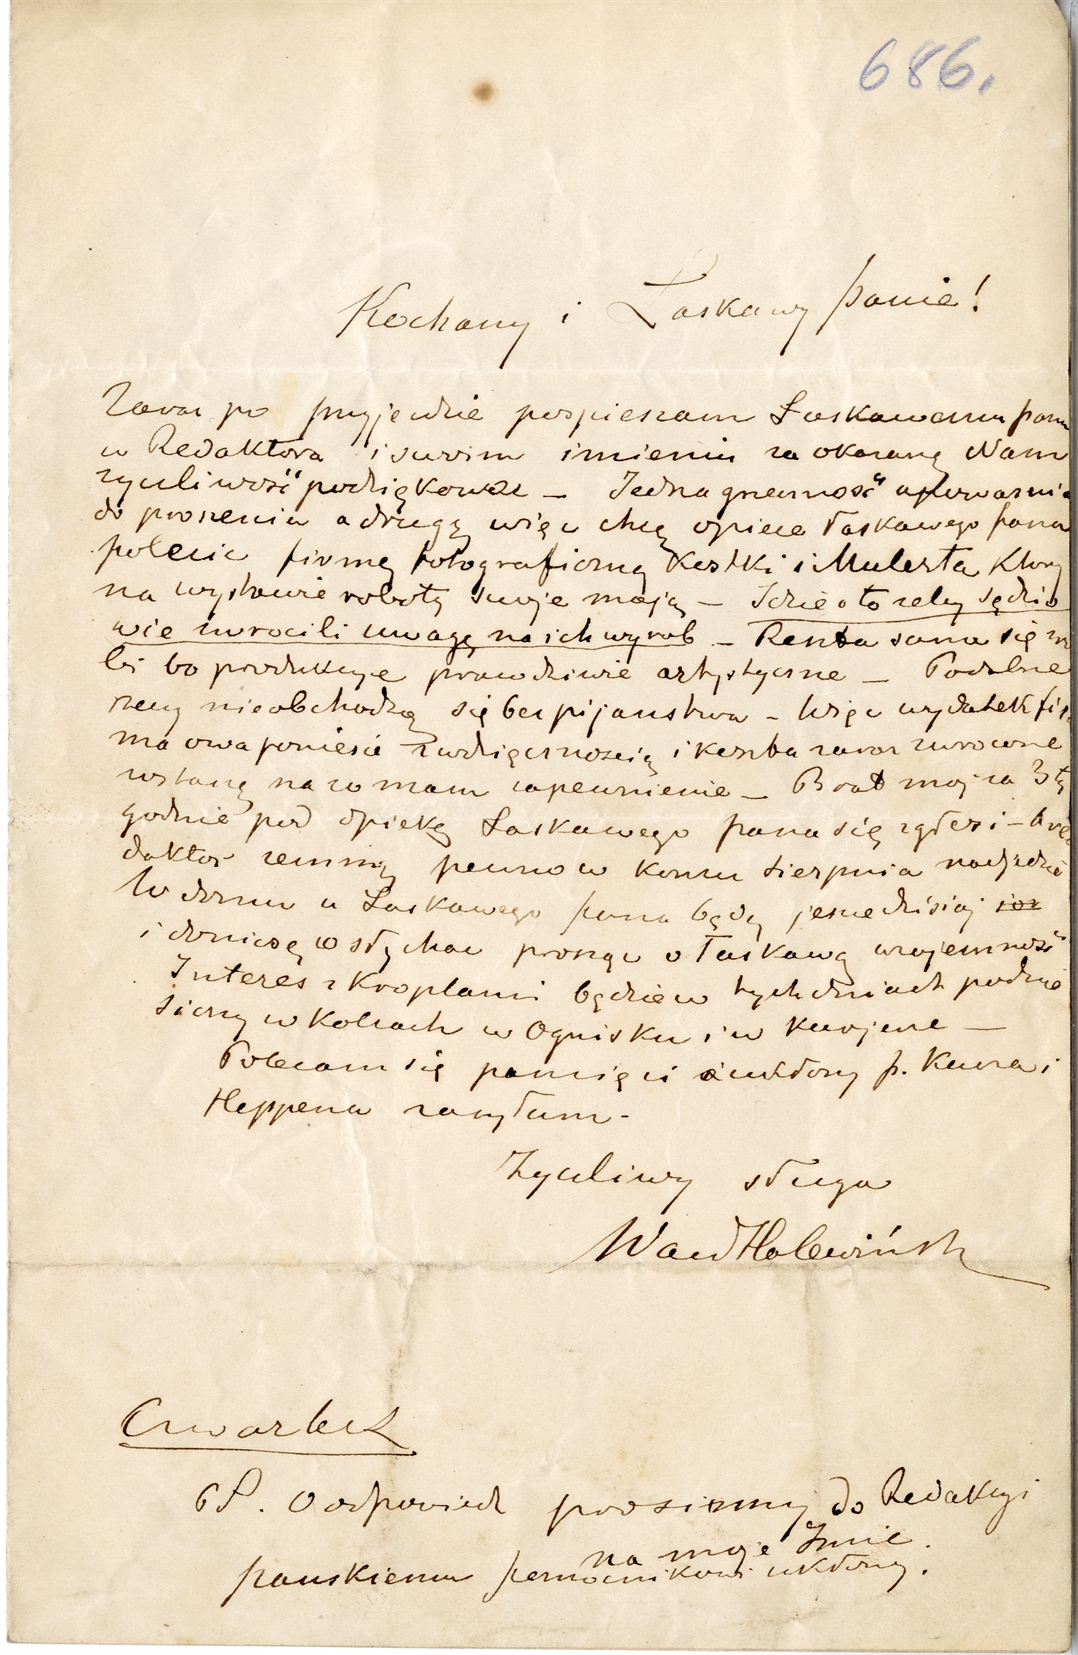 686.
Kochany i Łaskawy Panie!
Zaraz po przyjeździe pospieszam Łaskawemu panu
w Redaktora i swoim imieniu za okazaną Nam
życzliwość podziękować — Jedna grzeczność upoważnia
do proszenia a drugą więc chcę opiece łaskawego pana
polecić firmę fotograficzną Kostki i Mulerta Którzy
na wystawie roboty swoje mają — Idzie o to żeby sędzio
wie zwrócili uwagę na ich wyrób — Reszta sama się
bi bo produkuje prawdziwie artystyczne — Podobne
rzeczy nieobchodzą się bez pijaństwa — Więc wydatek fir
ma owa poniesie z wdzięcznością i koszta zaraz zwrócone
zostaną na co mam zapewnienie — Brat moj za 3 ty
godnie pod opiekę Łaskawego pana się zgłosi —
daktor zemną pewno w końcu Sierpnia nadjedzie
W domu u Łaskawego pana będę jeszcze dzisiaj
i doniosę co słychać prosząc o łaskawą wzajemność
Interes z Kroplami będzie w tych dniach podnie
siony w Kolcach w Ognisku i w Kurjerze —
Polecam się pamięci ukłony p. Kaura i
Heppena załączam —
Życzliwy sługa
Wand Holewińsk
Czwartek
PS. O odpowiedź prosimy do Redakcyi
na moje Imie.
pańskiemu pomocnikowi ukłony.